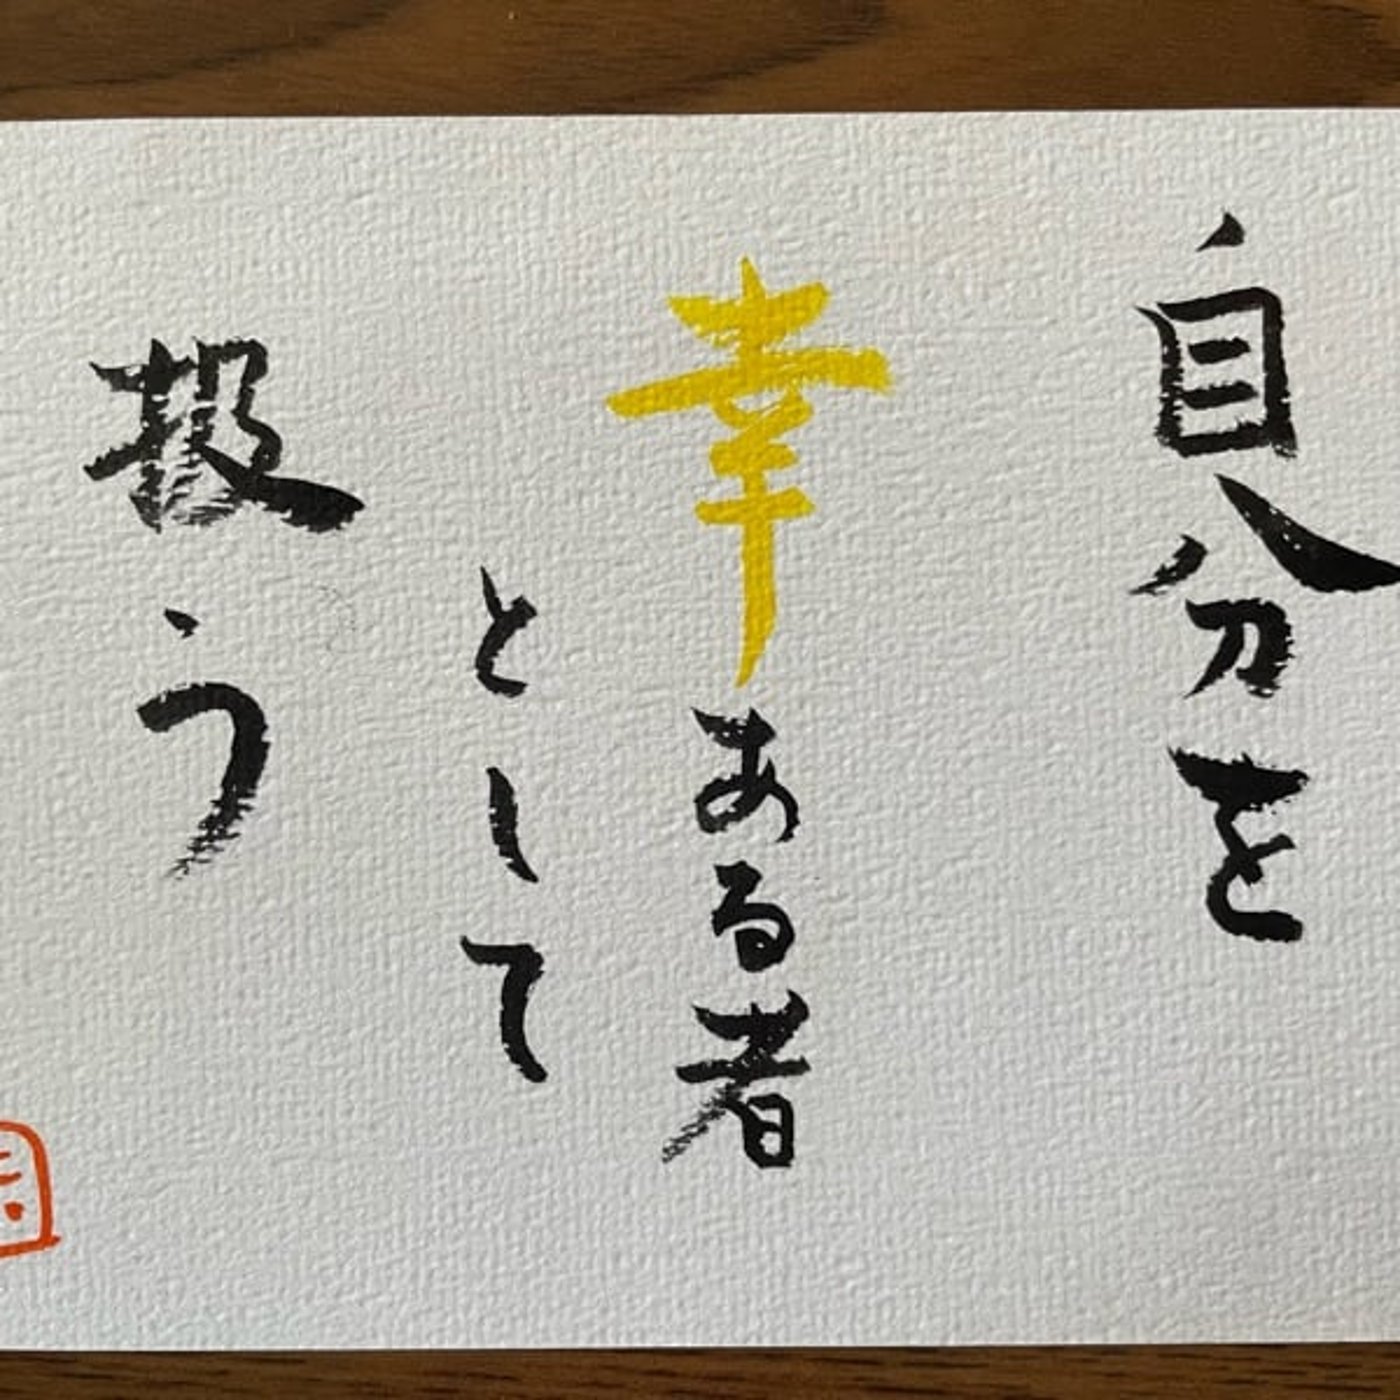 自分を
幸ある者
として
扱う